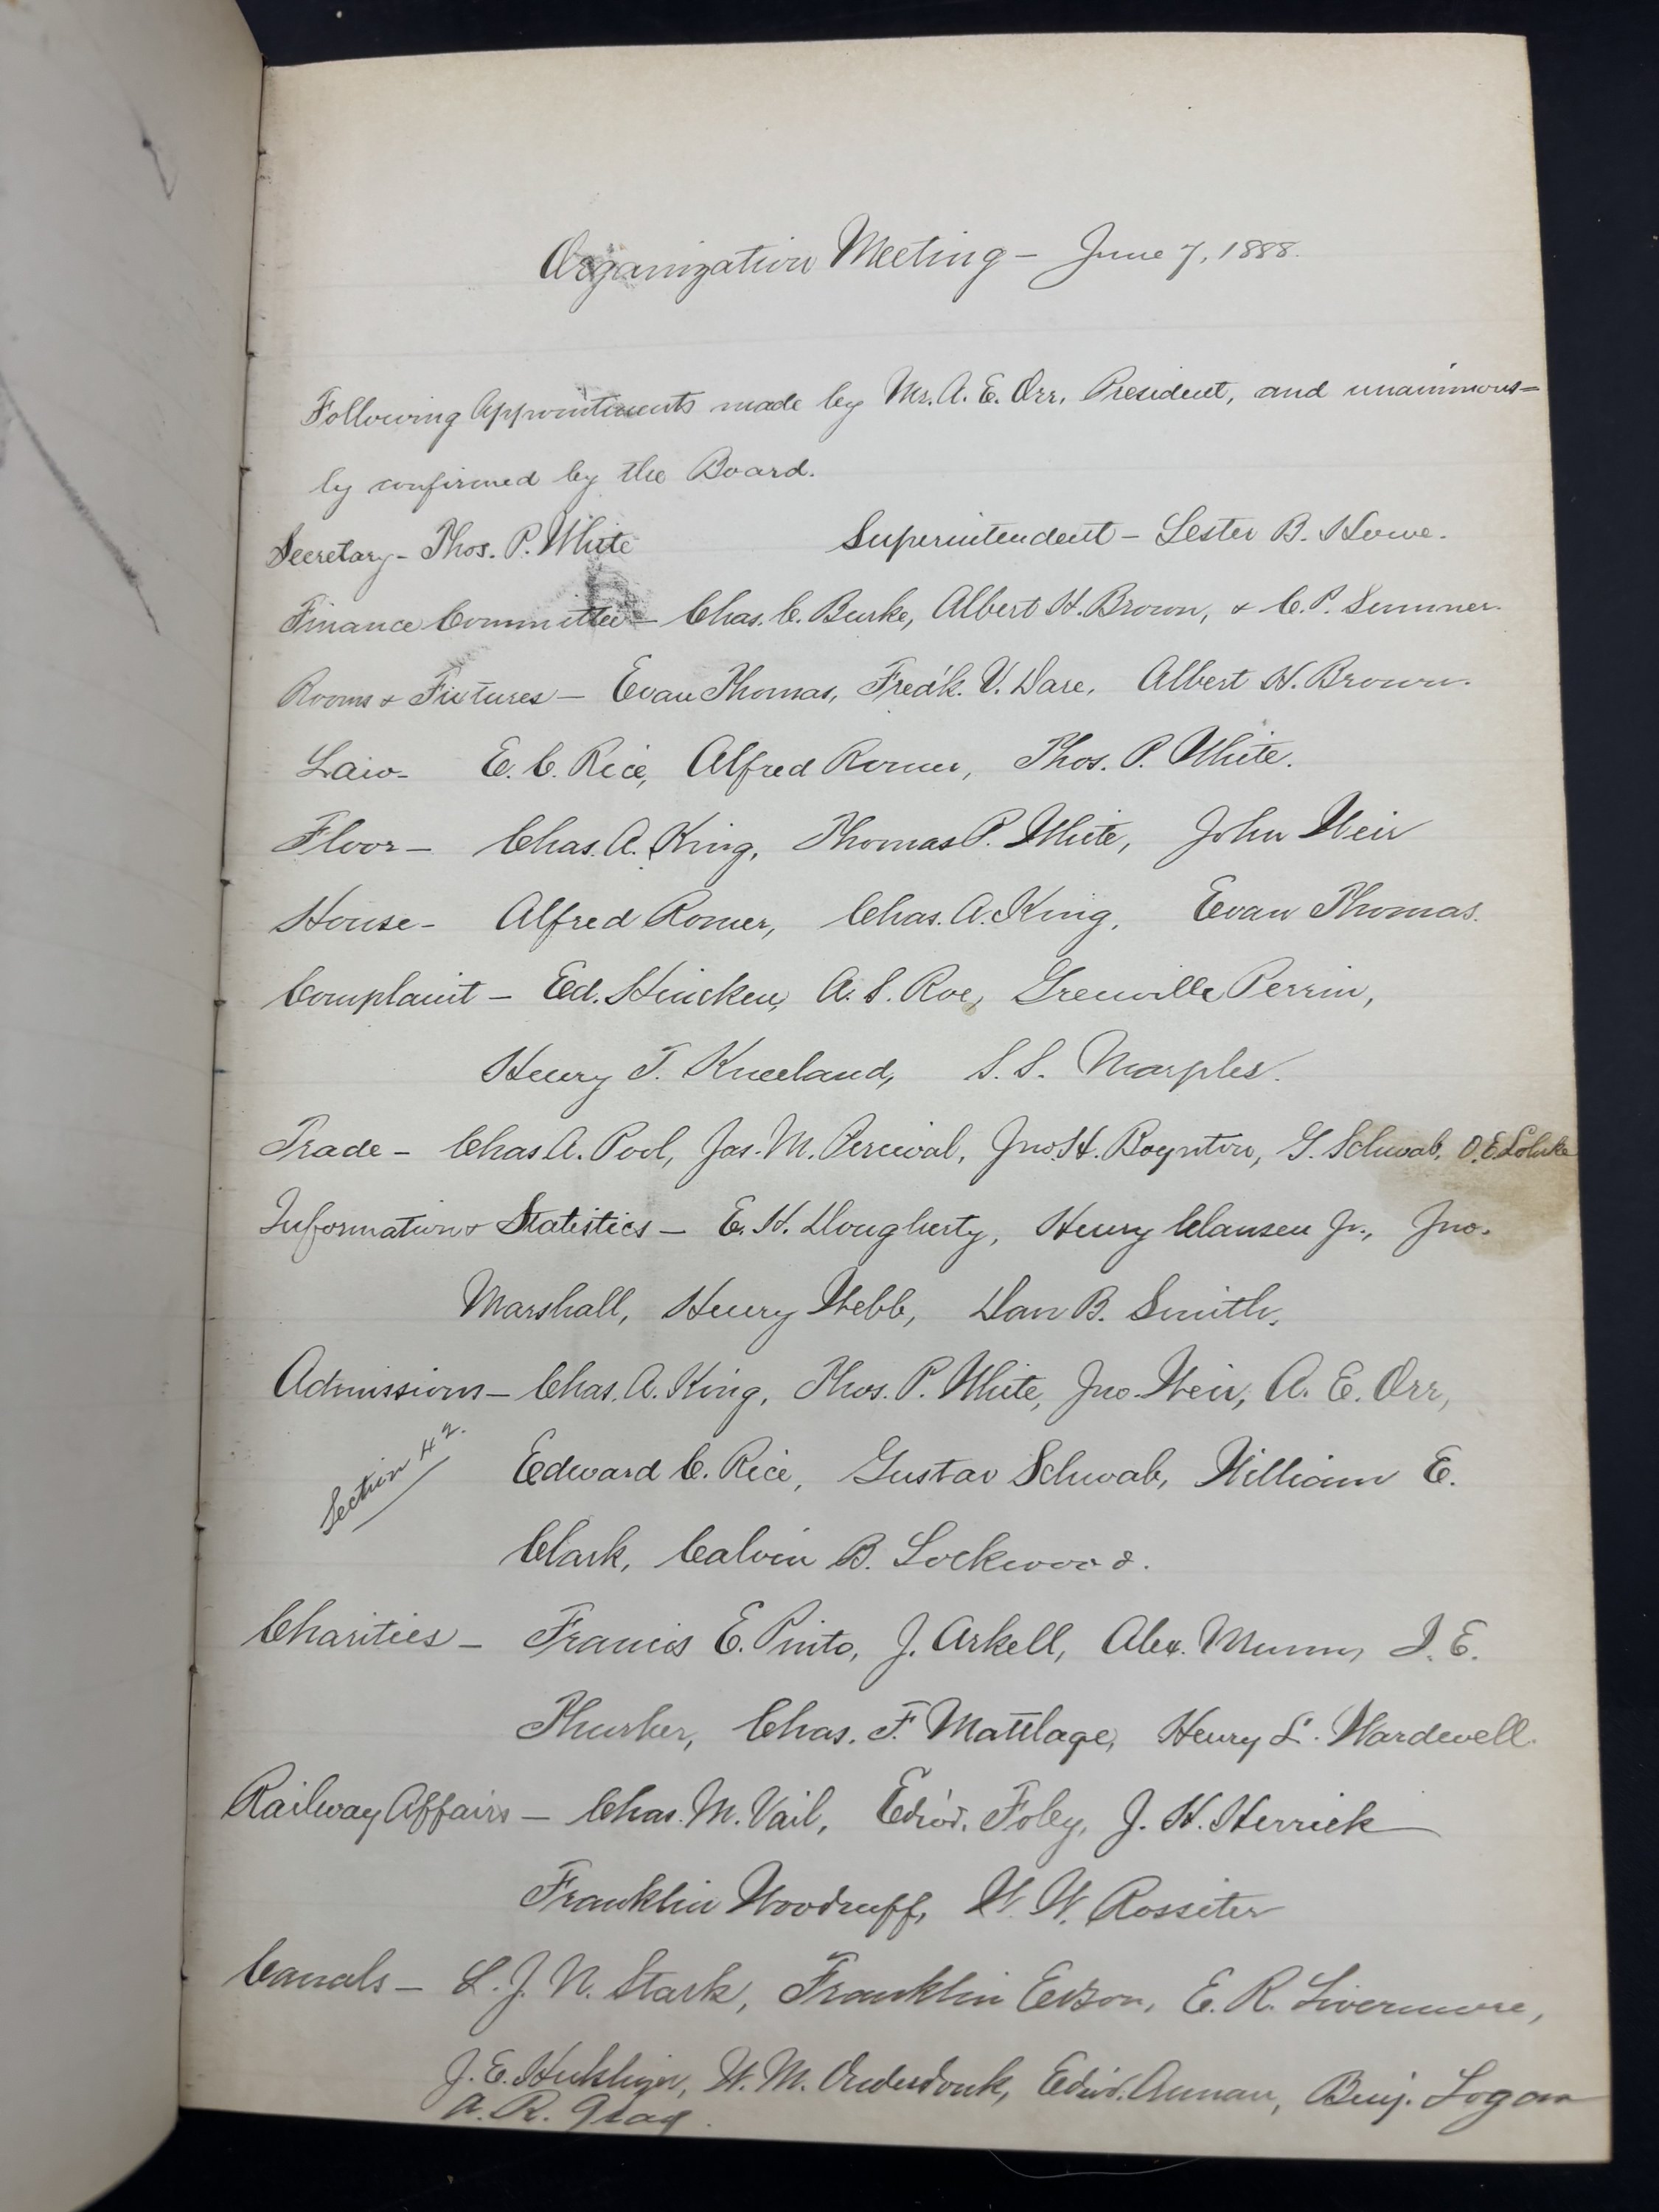 Organization Meeting – June 7, 1888.
Following Appointments made by Mr. A. E. Orr, President, and unanimous=
ly confirmed by the Board.
Secretary – Thos. P. White Superintendent – Lester B. Howe.
Finance Committee – Chas. C. Burke, Albert H. Brown, & C. P. Sumner.
Rooms & Fixtures – Evan Thomas, Fred'k. V. Dare, Albert H. Brown.
Law – E. C. Rice, Alfred Romer, Thos. P. White.
Floor – Chas. A. King, Thomas P. White, John Weir
House – Alfred Romer, Chas. A. King, Evan Thomas.
Complaint – Ed. Hincken, A. S. Roe, Grenville Perrin,
Henry T. Kneeland, S. S. Marples.
Trade – Chas. A. Pool, Jas. M. Percival, Jno. H. Boynton, G. Schwab, O. E. Lohrke
Information & Statistics – E. H. Dougherty, Henry Clausen Jr., Jno.
Marshall, Henry Webb, Dan B. Smith.
Admissions – Chas. A. King, Thos. P. White, Jno. Weir, A. E. Orr,
Section 42.
Edward C. Rice, Gustav Schwab, William E.
Clark, Calvin B. Lockwood.
Charities – Francis E. Pinto, J. Arkell, Alex. Munn, I. E.
Thurber, Chas. F. Mattlage, Henry L. Wardwell.
Railway Affairs – Chas. M. Vail, Edw'd. Foley, J. H. Herrick
Franklin Woodruff, W. W. Rossiter
Canals – L. J. N. Stark, Franklin Edson, E. R. Livermore,
J. E. W. M. Onderdonk, Edw'd. Annan, Benj. Logan
A. R. Gray.